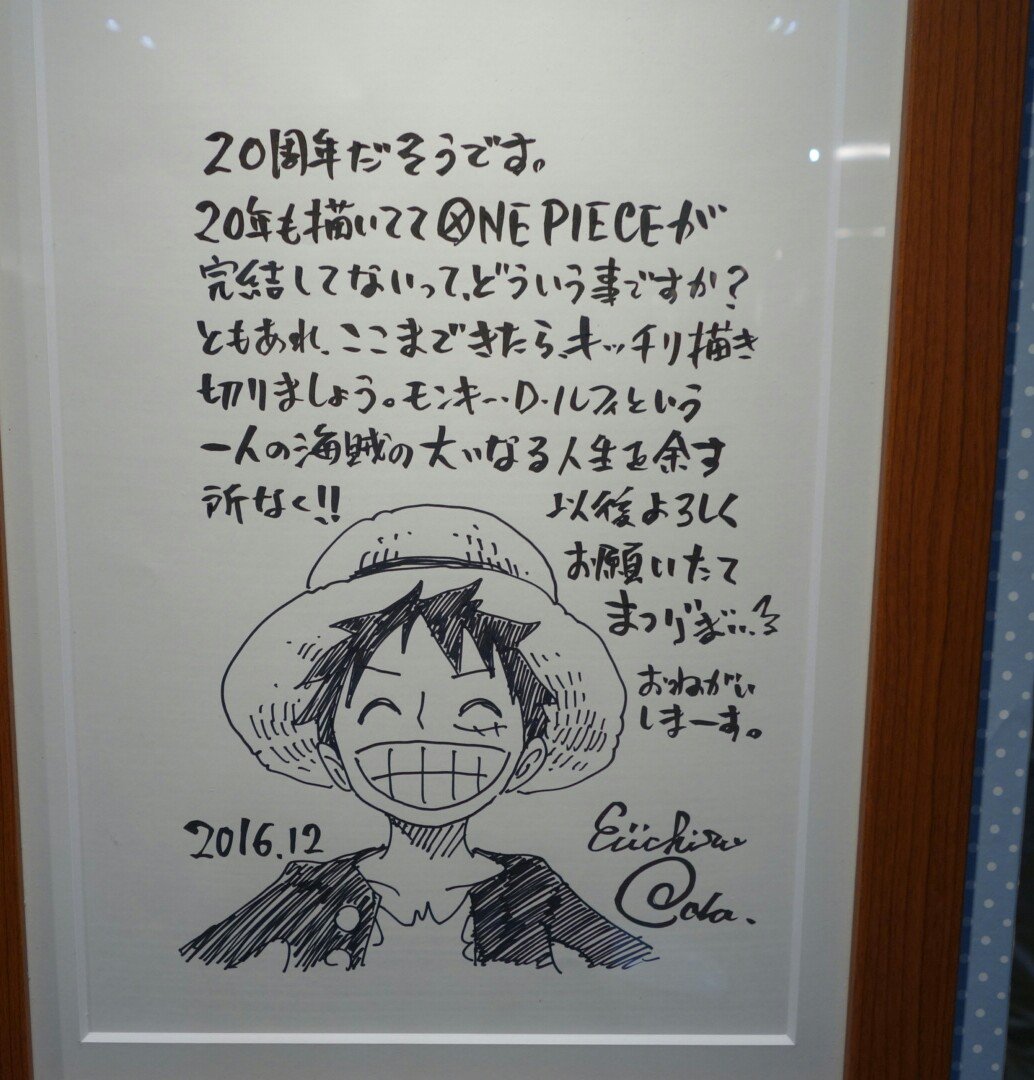 20周年だそうです。
20年も描いてて ONE PIECEが
完結してないって、どういう事ですか?
ともあれ、ここまできたら、キッチリ描き
切りましょう。モンキー・D・ルフィという
一人の海賊の大いなる人生を余す
所なく!!
以後よろしく
お願いたて
まつりまぃ.る
おねがい
しまーす。
2016.12
Eiichiro
Oda.